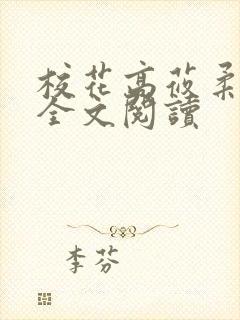 校花高莜柔
全文閱讀
李芬